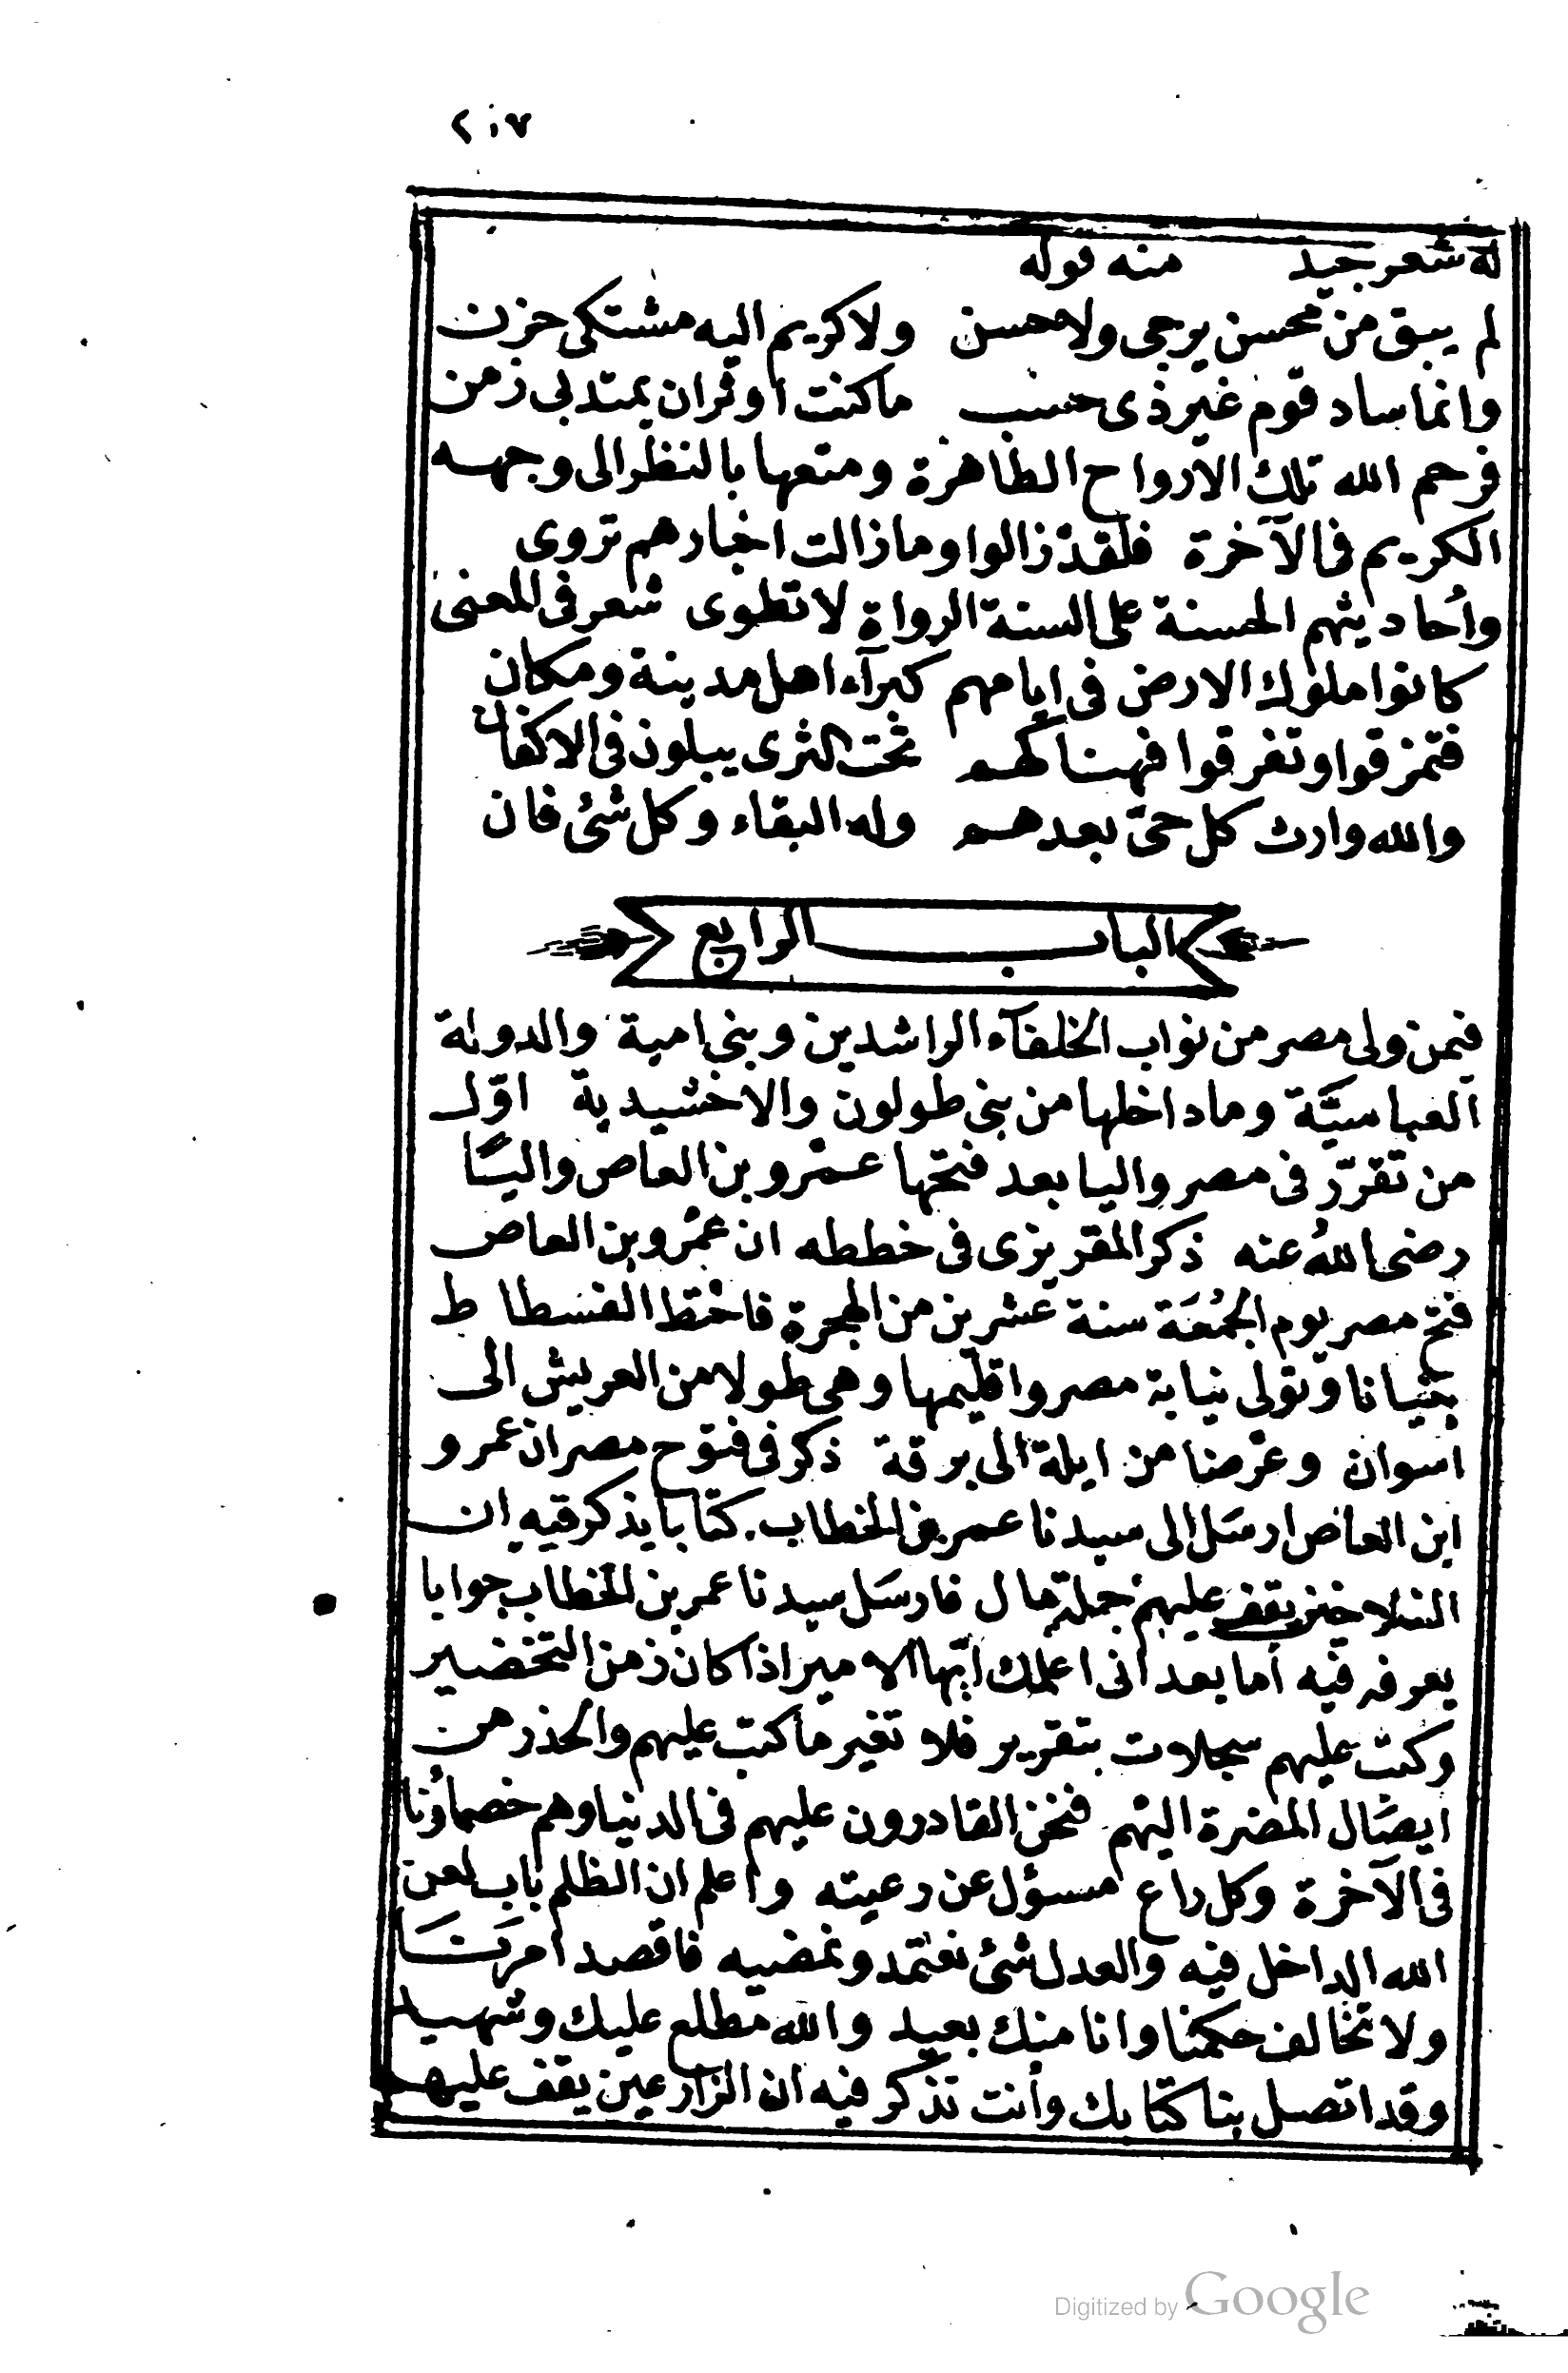 ٢٠٧
له شعر جيد منه قوله
لم يبق من محسن يرجى ولا محسن ولا كريم اليه مشتكى حزن
وانما ساد قوم غير ذى حسب ما كنت اوثر ان يمتد بى زمن
فرحم الله تلك الارواح الطاهرة ومتعها بالنظر الى وجهه
الكريم فى الآخرة فلقد زالوا وما زالت اخبارهم تروى
وأحاديثهم الحسنة على السنة الرواة لا تطوى شعر فى المعنى
كانوا ملوك الارض فى ايامهم كبرآء اهل مدينة ومكان
فتمزقوا وتفرقوا فهناكهم تحت الثرى يبلون فى الاكفان
والله وارث كل حىّ بعدهم وله البقاء وكل شئ فان
الباب الرابع
فيمن ولى مصر من نواب الخلفآء الراشدين وبنى امية والدولة
العباسيَّة وماداخلها من بنى طولون والاخشيدية اوّل
من تقرّر فى مصر واليا بعد فتحها عمْرو بن العاص واليًا
رضى اللهُ عنه ذكر المقريزى فى خططه ان عمْرو بن العاص
فتح مصر يوم الجُمُعَة سنة عشرين من الهجرة فاختط الفسطاط
وتولى نيابة مصر واقليمها وهى طولا من العريش الى
اسوان وعرضا من ايلة الى برقة ذكر فى فتوح مصر ان عمرو
ابن العاص ارسَل الى سيدنا عمر بن الخطاب كتابا يذكر فيه ان
الفلاحين يقف عليهم جملة مال فارسَل سيدنا عمر بن الخطاب جوابا
يعرفه فيه أما بعد انى اعلمك ايّها الامير اذا كان زمن التخضير
وكتبت عليهم سجلات بتقرير فلا تغير ما كتبت عليهم والحذر من
ايصَال المضرة اليهم فنحن القادرون عليهم فى الدنيا وهم خصماؤنا
فى الآخرة وكل راع مسؤل عن رعيته واعلم ان الظلم باب لعن
الله الداخل فيه والعدل شئ نعتمد ونمضيه فاقصد امرنَا
ولا تخالف حكمنا وانا منك بعيد والله مطلع عليك وشهيد
وقد اتصل بنا كتابك وأنت تذكر فيه ان الزارعين يقف عليهم
Digitized by Google